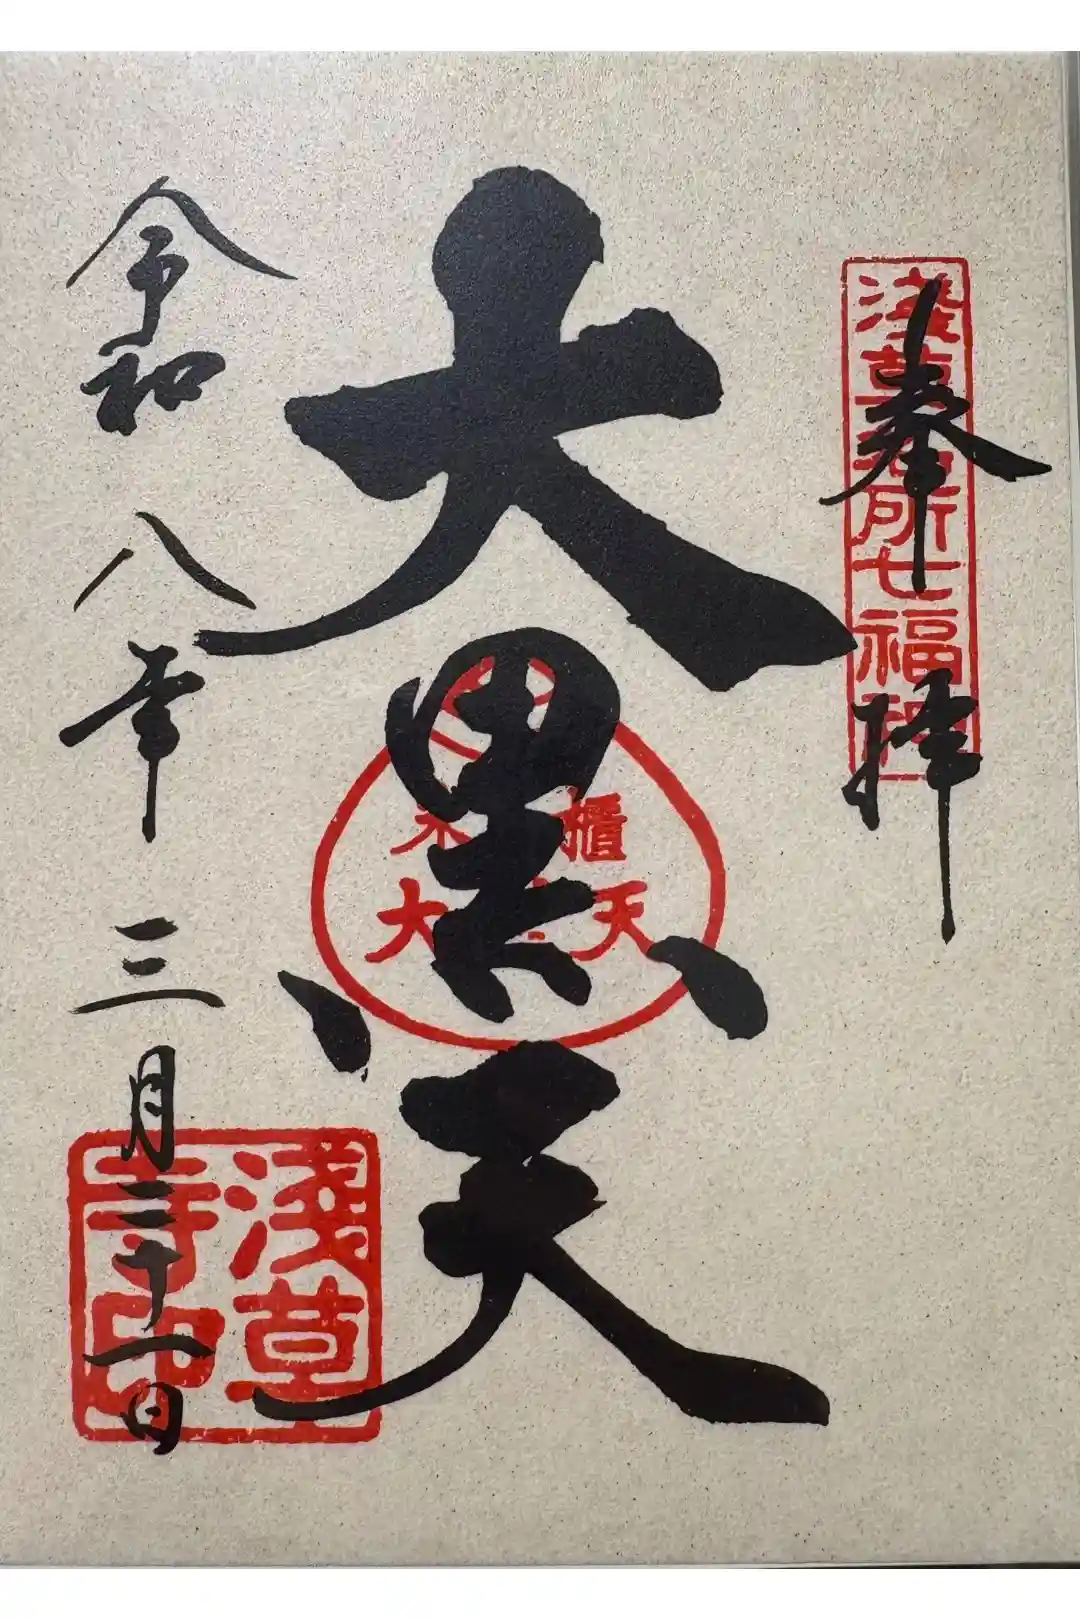 奉拝
淺草名所七福神
大黒天
米櫃
大黒天
令和八年三月三十一日
淺草
寺印